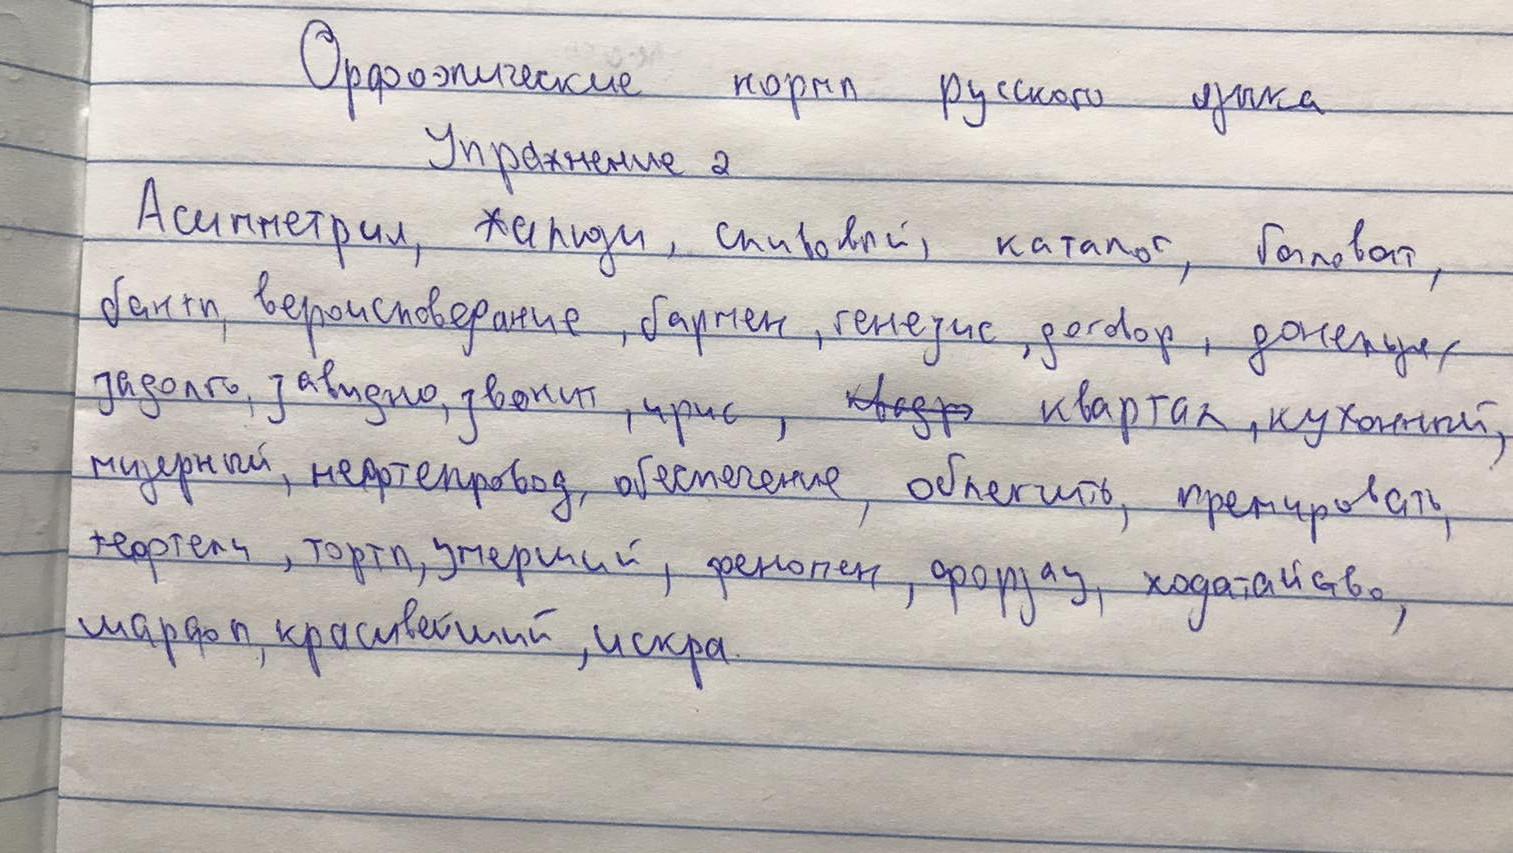 Орфоэпические нормы русского языка
Упражнение 2
Асимметрия, жалюзи, сливовый, каталог, баловать,
банты, вероисповедание, бармен, генезис, договор, донельзя,
задолго, завидно, звонит, ирис, квартал, кухонный,
мизерный, нефтепровод, обеспечение, облегчить, премировать,
тефтели, торты, умерший, феномен, форзац, ходатайство,
шарфы, красивейший, искра.